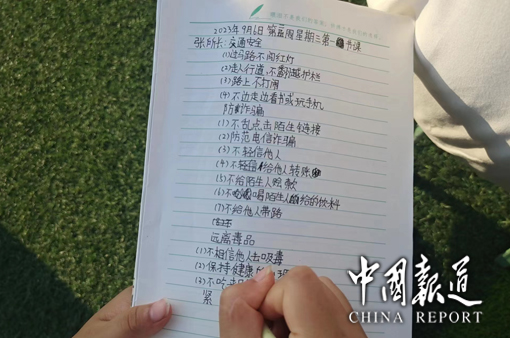 2023年9月6日 第蓝周星期三第一节课
张所长: 交通安全
(1)过马路不闯红灯
(2)走人行道,不翻越护栏
(3)路上不打闹
(4)不边走边看书或玩手机
防诈骗
(1)不乱点击陌生链接
(2)防范电信诈骗
(3)不轻信他人
(4)不轻信给他人转账
(5)不给陌生人赊款
(6)不喝陌生人给的饮料
(7)不给他人带路
远离毒品
(1)不相信他人去吸毒
(2)保持健康
(3)不吃
紧
中國報道
CHINA REPORT